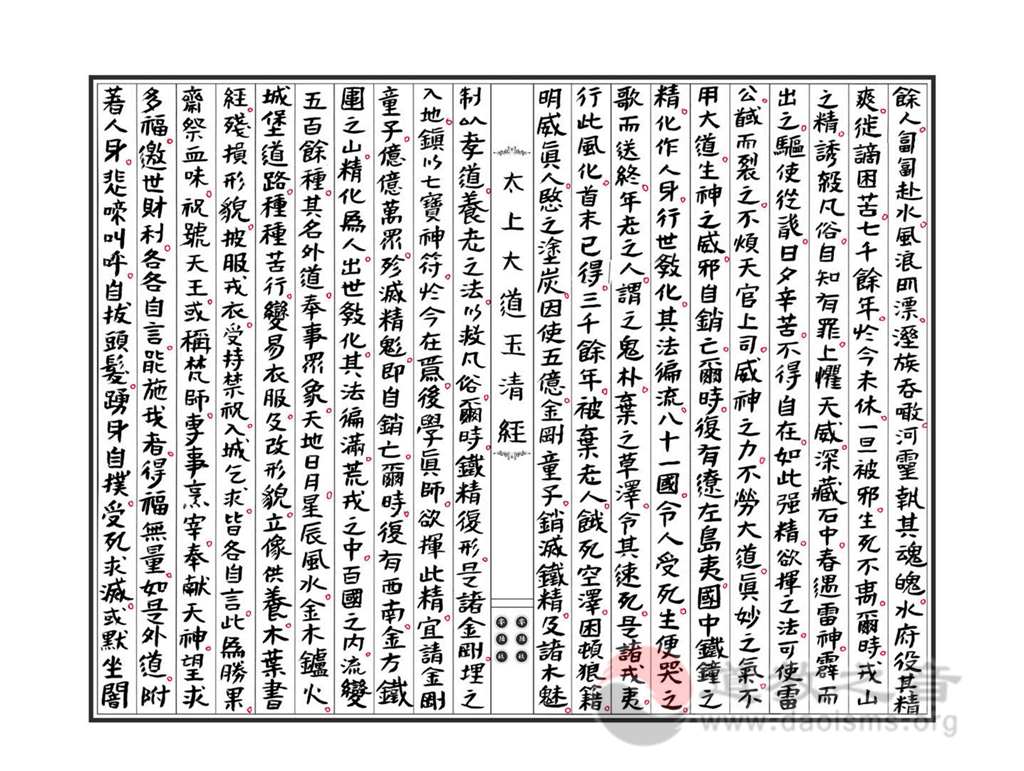 餘人匐匐赴水風浪㫤漂溺族吞噉河靈執其魂魄水府役其精
爽徙謫困苦七千餘年於今未休一旦被邪生死不离爾時戎山
之精誘殺凡俗自知有罪上懼天威深藏石中春遇雷神霹而
出之驅使從歲日夕辛苦不得自在如此强精欲揮之法可使雷
公䤋而裂之不煩天官上司威神之力不勞大道真妙之氣不
用大道生神之威邪自銷亡爾時復有遼左島夷國中鐵鐘之
精化作人身行世教化其法徧流八十一國令人受死生便哭之
歌而送終年老之人謂之鬼朴棄之草澤令其速死是諸戎夷
行此風化首末已得三千餘年被棄老人餓死空澤困頓狼籍
明威真人愍之塗炭因使五億金剛童子銷滅鐵精及諸木魅
太上大道玉清經
制以孝道養老之法以救凡俗爾時鐵精復形是諸金剛埋之
入地鎮以七寶神符於今在焉後學真師欲揮此精宜請金剛
童子億億萬眾殄滅精魁即自銷亡爾時復有西南金方鐵
圍之山精化為人出世教化其法徧滿荒戎之中百國之內流變
五百餘種其名外道奉事眾象天地日月星辰風水金木鑪火
城堡道路種種苦行變易衣服及改形貌立像供養木葉書
經殘損形貌披服戎衣受持禁祝入城乞求皆各自言此為勝果
齋祭血味祝號天王或稱梵師專事烹宰奉獻天神望求
多福邀世財利各各自言能施我者得福無量如是外道附
著人身悲啼叫呼自拔頭髮踴身自撲受死求滅或默坐闇
道教之音
www.daoisms.org